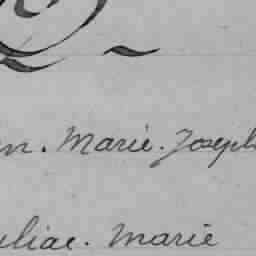 n. Marie. Joseph
uliac. Marie